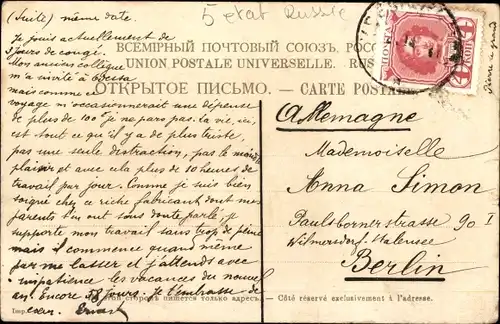 (Suite) même date.
5 etat Russie
Je jouis actuellement de
3 jours de congé.
Mon ancien collègue
m'a invité à Odessa
mais comme ce
voyage m'occasionnerait une dépense
de plus de 100 je ne pars pas. la vie, ici,
est tout ce qu'il y a de plus triste,
pas une seule distraction, pas le moindre
plaisir et avec cela plus de 10 heures de
travail par jour. Comme je suis bien
soigné chez ce riche fabricant dont mes
parents t'en ont sans doute parlé, je
supporte mon travail sans trop de peine
mais il commence quand même
par me lasser et j'attends avec
impatience les vacances du nouvel
an. Encore jours. Je t'embrasse de
Ernest
ВСЕМІРНЫЙ ПОЧТОВЫЙ СОЮЗЪ. РОСС
UNION POSTALE UNIVERSELLE. RUS
ОТКРЫТОЕ ПИСЬМО. — CARTE POSTALE
Allemagne
Mademoiselle
Anna Simon
Paulsbornerstrasse 90 I
Wilmersdorf-Halensee
Berlin
сторонѣ пишется только адресъ. — Côté réservé exclusivement à l'adresse.
Imp.